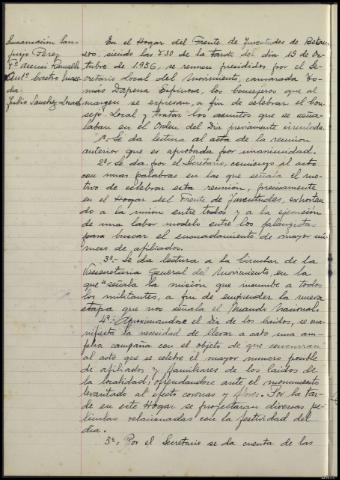 Encarnación Cam-
pujo Pérez
Fº
Antº Castro
da
Julio Sánchez
En el Hogar del Frente de Juventudes de
, siendo las 7'30 de la tarde del día 13 de Oc-
tubre de 1956, se reunen presididos por el Se-
cretario Local del Movimiento, camarada To-
más Dapena Espinosa, los consejeros que al
margen se expresan, a fin de celebrar el Con-
sejo Local y tratar los asuntos que se seña-
laban en el Orden del Día previamente circulado.
1º.- Se da lectura al acta de la reunión
anterior que es aprobada por unanimidad.
2º.- Se da por el Secretario, comienzo al acto
con unas palabras en las que señala el mo-
tivo de celebrar esta reunión, precisamente
en el Hogar del Frente de Juventudes, exhortan-
do a la unión entre todos y a la ejecución
de una labor modelo entre los falangistas
para buscar el encuadramiento de mayor nú-
mero de afiliados.
3º.- Se da lectura a la Circular de la
Vicesecretaría General del Movimiento en la
que señala la misión que incumbe a todos
los militantes, a fin de emprender la nueva
etapa que nos señala el Mando Nacional.
4º.- Aproximándose el día de los Caídos, se ma-
nifiesta la necesidad de llevar a cabo una am-
plia campaña con el objeto de que concurran
al acto que se celebre el mayor número posible
de afiliados y familiares de los caídos de
la localidad, ofrendándose ante el monumento
levantado al efecto coronas y flores. Por la tar-
de en este Hogar se proyectarán diversas pe-
lículas relacionadas con la festividad del
día.
5º.- Por el Secretario se da cuenta de las